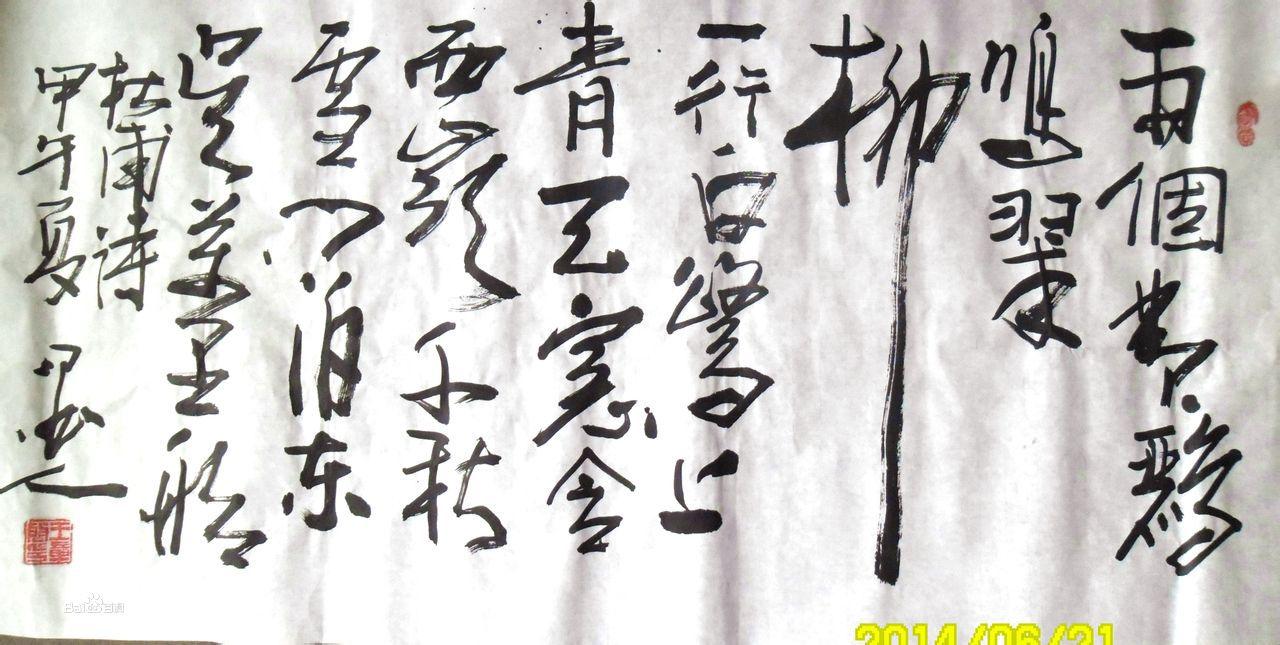 兩個黄鸝
鳴翠
柳
一行白鷺上
青天窓含
西嶺千秋
雪门泊东
吴萬里船
杜甫诗
甲午夏
Baidu百科
2014/06/21